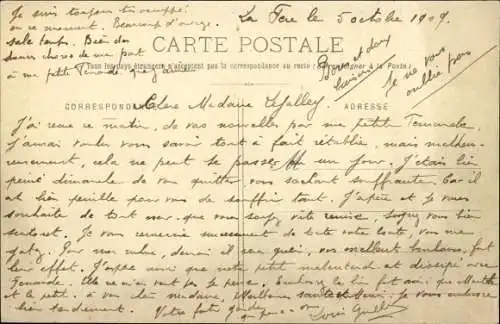 Je suis toujours très occupé
en ce moment. Beaucoup d'orage.
sale temps. Bien des
choses de ma part
à ma petite Fernande que j'aime
La Fère le 5 octobre 1909.
CARTE POSTALE
Tous les pays étrangers n'acceptent pas la correspondance au recto (se renseigner à la Poste)
Bons et doux
baisers
Je ne vous
oublie pas
CORRESPONDANCE
ADRESSE
Chère Madame Lefalley
J'ai reçu ce matin, de vos nouvelles par ma petite Fernande.
J'aurai voulu vous savoir tout à fait rétablie, mais malheu-
reusement, cela ne peut se passer en un jour. J'étais bien
peiné dimanche de vous quitter vous sachant souffrante. Car il
est bien pénible pour vous de souffrir tant. J'espère et je vous
souhaite de tout cœur que vous soyez vite remise, soignez vous bien
surtout. Je vous remercie de toute votre bonté, vous me
gâtez. Pour mon rhume, demain il sera guéri, vos excellents bonbons, font
leur effet. J'espère aussi que notre petit malentendu est dissipé avec
Fernande. Elle ne m'en veut pas je pense. Embrassez le bien fort ainsi que
et le petit. à vous chère madame, Meilleure santé et Merci. Je vous embrasse
bien tendrement. Votre futur gendre
qui pense à vous Louis